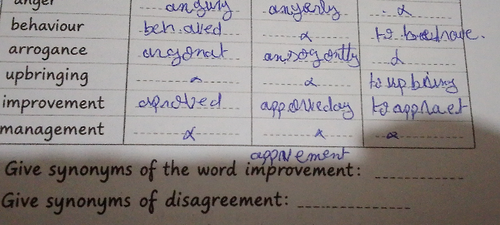 anger angury angerly α
behaviour behaved α to behave.
arrogance arrgonat arrogontly α
upbringing α α to upbring
improvement aproved approveday to appraet
management α α α
appriement
Give synonyms of the word improvement:
Give synonyms of disagreement: